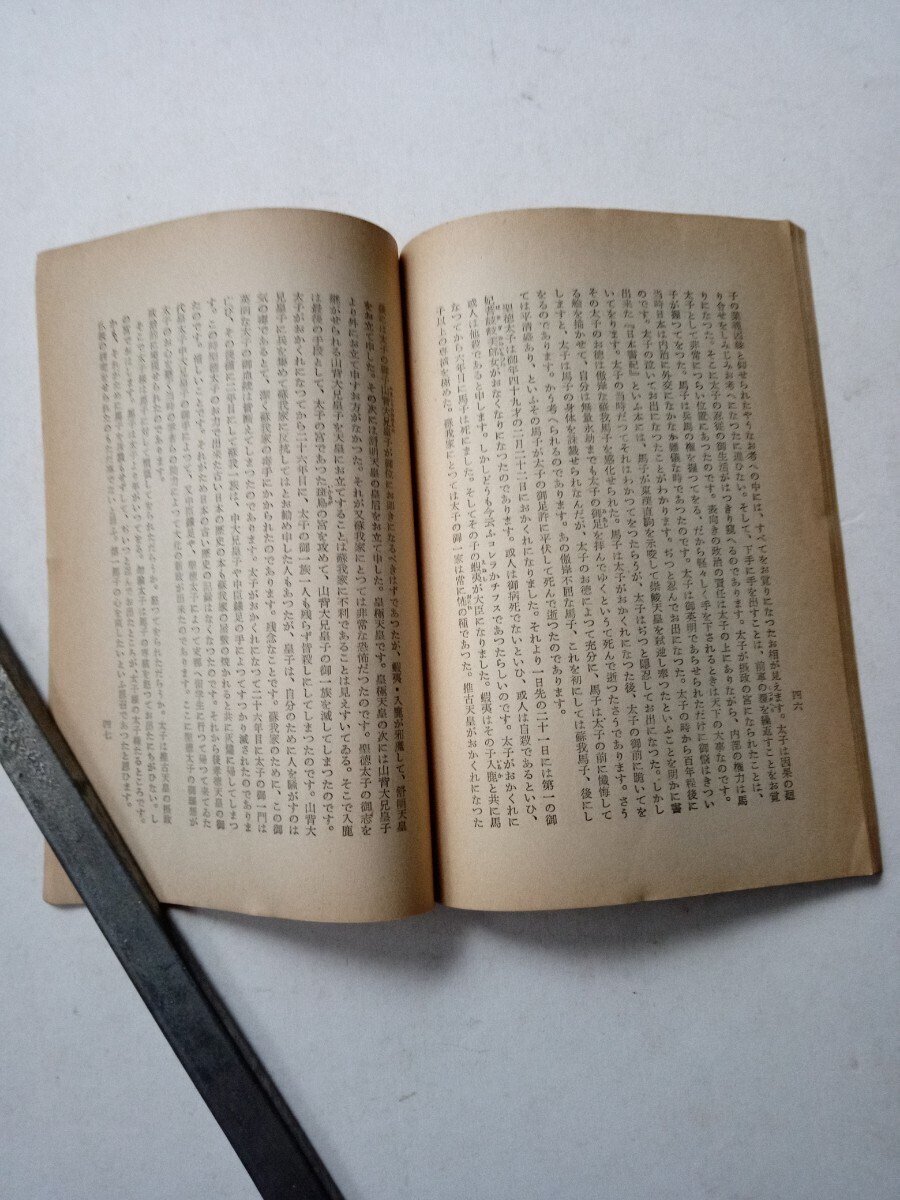 四六
子の業報因縁と仰せられたやうなお考への中には、すべてをお覚りになつたお相が見えます。太子は因果の廻
り合せをしみじみお考へになつたに違ひない。そして、下手に手を出すことは、前事の覆を繰返すことをお覚
りになつた。そこに太子の忍従の御生活がはつきり窺へるのであります。太子が摂政の宮になられたことは、
太子として非常につらい位置にあつたのです。表向きの政治の責任は太子の上にありながら、内部の権力は馬
子が握つてをつた。馬子は兵馬の権を握つてをる。だから軽々しく手を下されるときは天下の大事なのです。
当時日本は内治に外交になかなか難儀な時であつたのです。太子は御英明であらせられただけに御悩はきつい
のです。太子の泣いてお出になつたことがわかります。ぢつと忍んでお出になつた。太子の時から百年程後に
出来た『日本書紀』といふ本には、馬子が東漢直駒を示唆して崇峻天皇を弑逆し奉つたといふことを明かに書
いてをります。太子の当時だつてそれはわかつてをつたらうが、太子はぢつと隠忍してお出になつた。しかし
その太子のお徳は傲岸な蘇我馬子を感化せられた。馬子は太子がおかくれになつた後、太子の御前に跪いてを
る絵を描かせて、自分は無量永劫までも太子の御足を拝んでゆくというて死んで逝つたさうであります。さう
しますと、太子は馬子の身体を誅戮せられなんだが、太子のお徳によつて充分に、馬子は太子の前に懺悔して
をるのであります。かう考へられるのであります。あの傲岸不屈な馬子、これを初にしては蘇我馬子、後にし
ては平清盛あり、といふその馬子が太子の御足許に平伏して死んで逝つたのであります。
聖徳太子は御年四十九才の二月二十二日におかくれになりました。それより一日先の二十一日には第一の御
妃膳部菩岐岐美郎女がおなくなりになつたのであります。或人は御病死でないといひ、或人は自殺であるといひ、
或人は他殺であると申します。しかしどうも今云ふコレラかチフスであつたらしいのです。太子がおかくれに
なつてから六年目に馬子は死にました。そしてその子の蝦夷が大臣になりました。蝦夷はその子入鹿と共に馬
子以上の専横を極めた。蘇我家にとつては太子の御一家は常に怖の種であつた。推古天皇がおかくれになつた
後には太子の御子山背大兄皇子が御位にお即きになるべきはずであつたが、蝦夷・入鹿が邪魔して、舒明天皇
をお立て申した。その次には舒明天皇の皇后をお立て申した。皇極天皇です。皇極天皇の次には山背大兄皇子
より外にお立て申すお方がなかつた。それが又蘇我家にとつては非常な恐怖だつたのです。聖徳太子の御志を
継がせられる山背大兄皇子を天皇にお立てすることは蘇我家に不利であることは見えすいてゐる。そこで入鹿
は最後の手段として、太子の宮であつた斑鳩の宮を攻めて、山背大兄皇子の御一族を滅してしまつたのです。
太子がおかくれになつてから二十六年目に、太子の御一族一人も残らず皆殺しにしてしまつたのです。山背大
兄皇子に兵を集めて蘇我家に反抗してはとお勧め申した人もあつたが、皇子は、自分のために人を騒がすのは
気の毒であるとて、潔く蘇我家の毒手にかかられたのであります。残念なことです。蘇我家のために、この御
英明な太子の御血縁は皆断えてしまつたのであります。太子がおかくれになつて二十六年目に太子の御一門は
亡び、その後僅に二年目にして蘇我一族は、中大兄皇子や中臣鎌足の手によつてすつかり滅されたのでありま
す。この時、太子のお力で出来た古い日本の歴史の本も蘇我家の屋敷の焼かれると共に灰燼に帰してしまつ
たのです。惜しいことです。それがため日本の古い歴史の記録はなくなつたのです。それから後孝徳天皇の御
代に皇太子中大兄皇子の御手によつて、又中臣鎌足や、聖徳太子によつて支那へ留学生に行つて帰つて来てゐた
四七